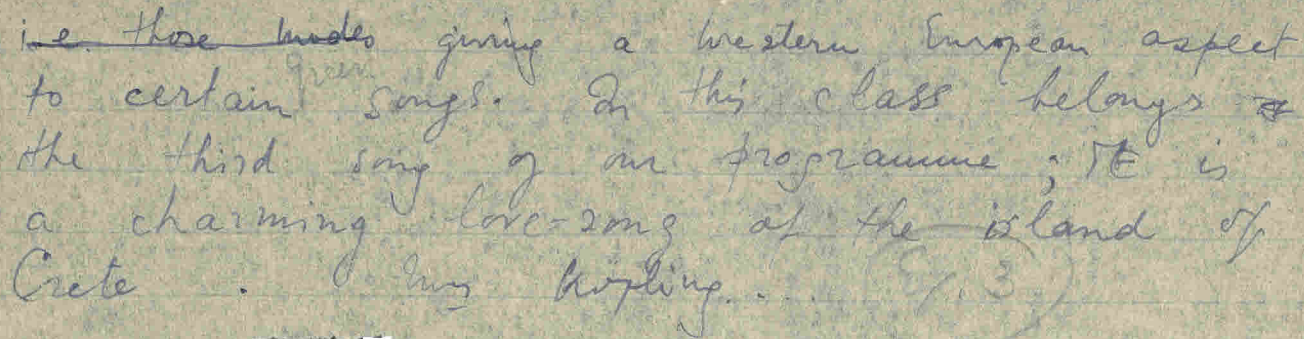 i.e. those modes giving a Western European aspect
to certain songs. In this class belongs
the third song of our programme; It is
a charming love-song of the island of
Crete.